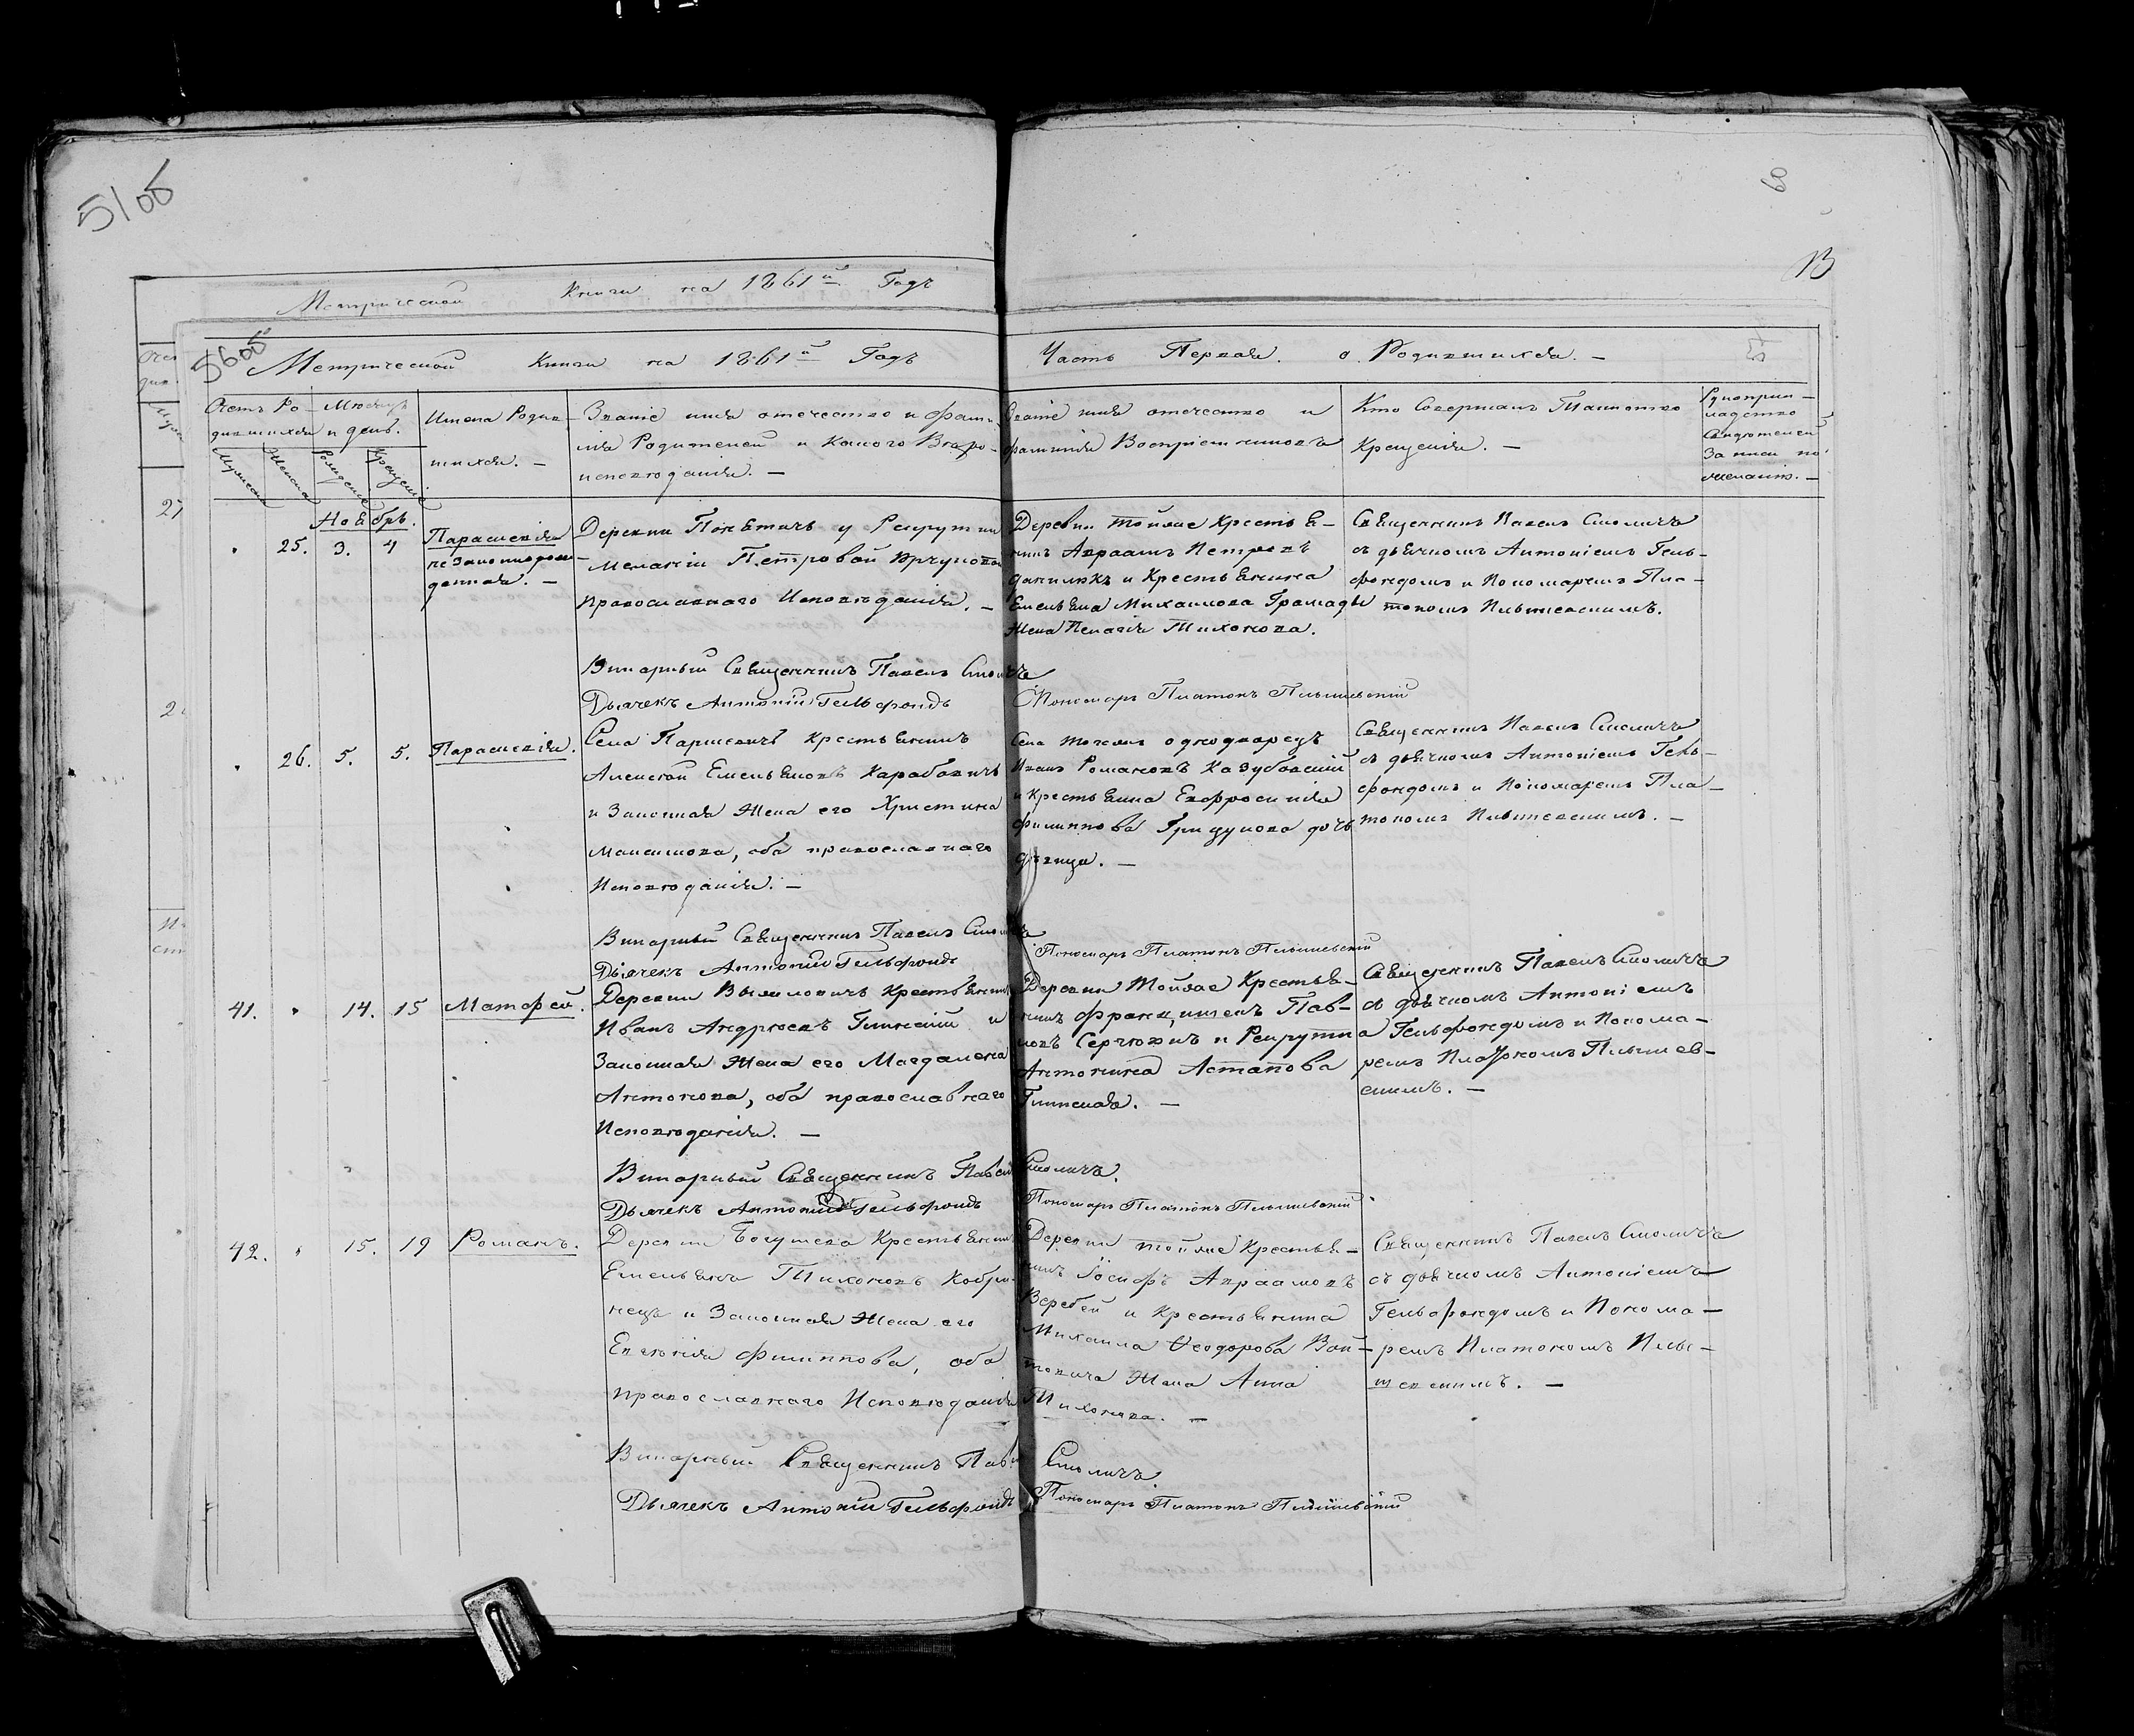 51об
Метрической Книги на 1861й Годъ
56об
Метрической Книги на 1861й Годъ
Часть Первая. о Родившихся. —
Счетъ Ро-
дившихся
Мужеска
Женска
Мѣсяцъ
и день.
Рожденіе
Крещеніе
Имена Родив-
шихся. —
Званіе имя отечество и фами-
лія Родителей и Какого Вѣро-
исповѣданія. —
Званіе имя отечество и
фамилія Воспріемниковъ
Кто Совершалъ Таинство
Крещенія. —
Рукоприк-
ладство
Свидѣтелей
Записи по
желанію. —
Ноябрь.
25. 3. 4
Параскевія
незаконнорож-
денная. —
Деревни у Рекрутки
Меланіи Петровой
православнаго Исповѣданія. —
Деревни Тойлае Крестья-
нинъ Авраамъ Петровъ
Данилюкъ и Крестьянина
Емельяна Михаилова Громады
Жена Пелагія Тихонова.
Священникъ Павелъ Смоличъ
съ дьячкомъ Антоніемъ Гель-
фондомъ и Пономаремъ Пла-
тономъ
Викарный Священникъ Павелъ Смоличъ
Дьячекъ Антоній Гельфондъ
Пономарь Платонъ
26. 5. 5. Параскевія.
Села Паршевичъ Крестьянинъ
Алексей Емельяновъ Карабовичъ
и Законная Жена его Христина
Максимова, оба православнаго
Исповѣданія. —
Села однодворецъ
Иванъ Романовъ Казубовскій
и Крестьянина Евфросинія
Филиппова Грицукова дочь
дѣвица. —
Священникъ Павелъ Смоличъ
съ дьячкомъ Антоніемъ Гель-
фондомъ и Пономаремъ Пла-
тономъ
Викарный Священникъ Павелъ Смоличъ
Дьячекъ Антоній Гельфондъ
Пономарь Платонъ
41. 14. 15 Матфей.
Деревни Крестьянинъ
Иванъ Андреевъ и
Законная Жена его Магдалена
Антонова, оба православнаго
Исповѣданія. —
Деревни Тойлае Крестья-
нинъ Пав-
ловъ и Рекрутка
Антонина Астапова
Священникъ Павелъ Смоличъ
съ дьячкомъ Антоніемъ
Гельфондомъ и Понома-
ремъ Платономъ
Викарный Священникъ Павелъ Смоличъ.
Дьячекъ Антоній Гельфондъ
Пономарь Платонъ
42. 15. 19 Романъ.
Деревни Богушева Крестьянинъ
Емельянъ Тихоновъ Кобри-
нецъ и Законная Жена его
Евгенія Филиппова, оба
православнаго Исповѣданія
Деревни Тойлае Крестья-
нинъ Іосифъ Авраамовъ
Веребей и Крестьянина
Михаила Ѳеодорова Вой-
товича Жена Анна
Тихонова. —
Священникъ Павелъ Смоличъ
съ дьячкомъ Антоніемъ
Гельфондомъ и Понома-
ремъ Платономъ
Викарный Священникъ Павелъ Смоличъ
Дьячекъ Антоній Гельфондъ
Пономарь Платонъ